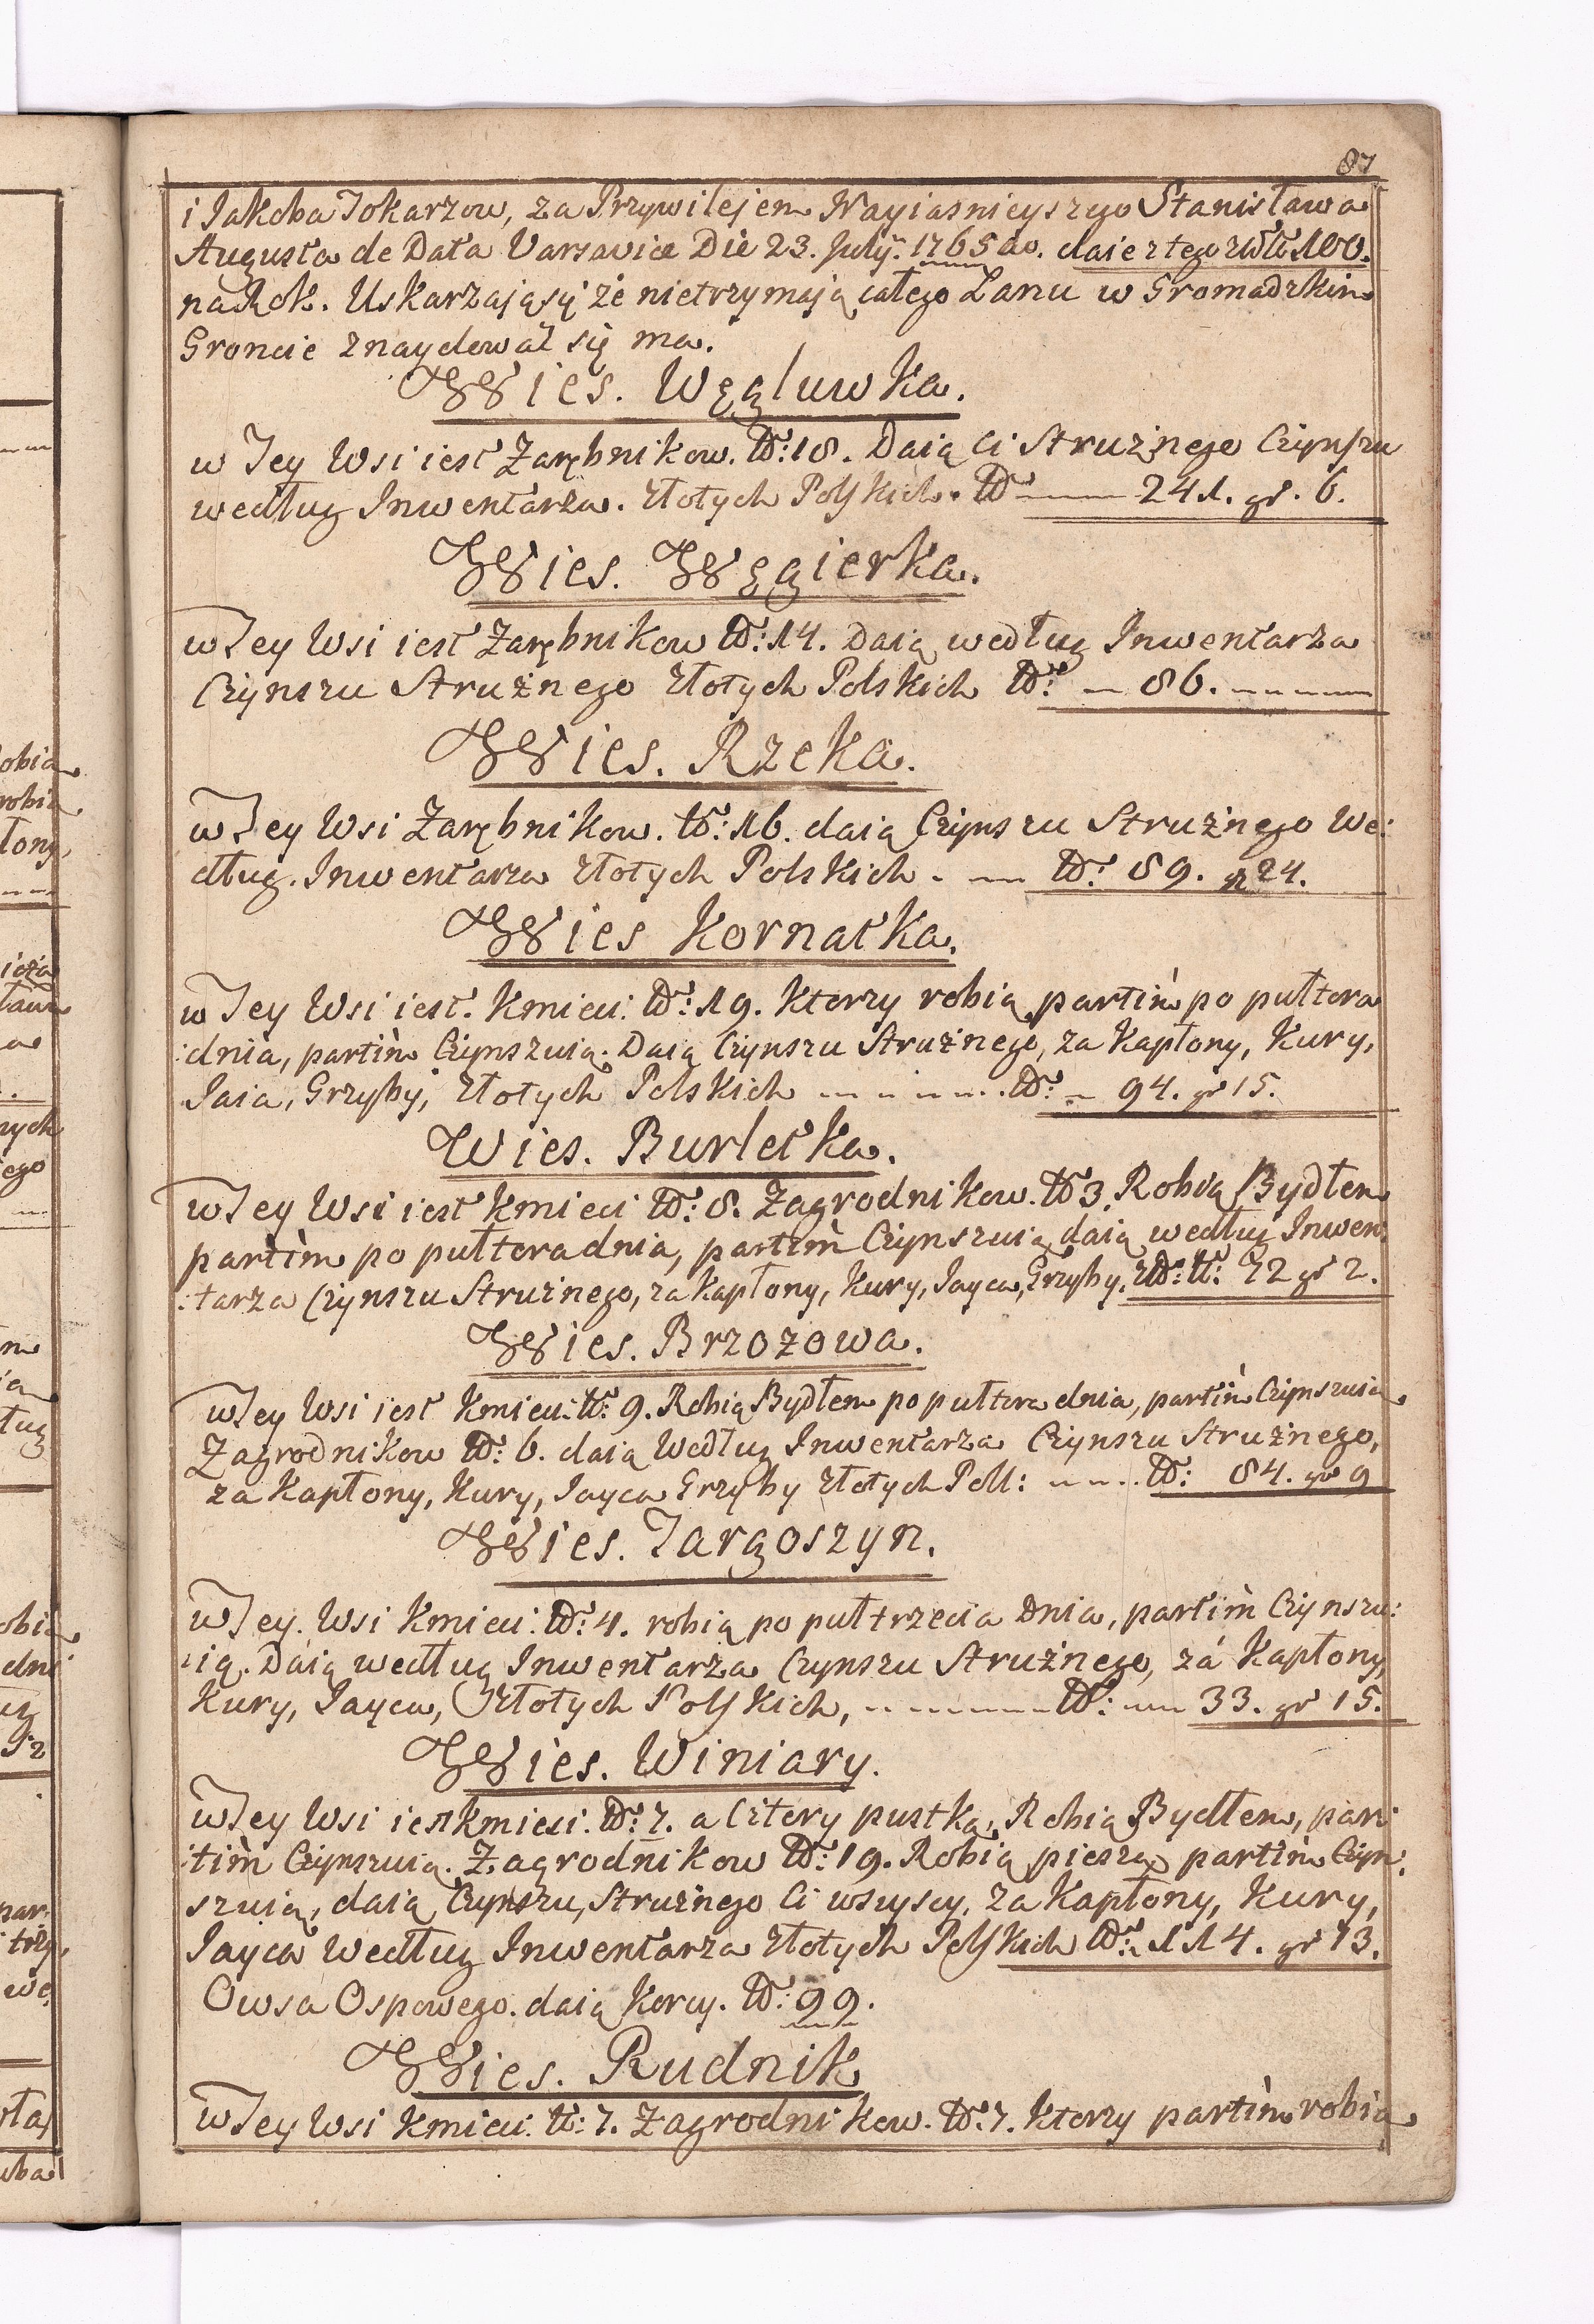 87
i Jakoba Tokarzow, za Przywilejem Nayiasnieyszego Stanisława
Augusta de Data Varsaviæ Die 23. Julÿ. 1765 ao. daie z tego zł№ 100.
na Rok. Uskarzają się że nietrzymają całego Łanu w Gromadzkim
Groncie znaydować się ma.
Wies. Węgluwka.
w Tey Wsi iest Zarębnikow. №: 18. Daią Ci Strużnego Czynszu
według Inwentarza. Złotych Polskich. № 241. gr. 6.
Wies. Węgierka.
w Tey Wsi iest Zarębnikow №: 14. Daią według Inwentarza
Czynszu Strużnego Złotych Polskich №: 86.
Wies. Rzeka.
w Tey Wsi Zarębnikow. №: 16. daią Czynszu Strużnego We:
dług. Inwentarza Złotych Polskich. №: 89. gr 24.
Wies Kornatka.
w Tey Wsi iest. Kmieci: №: 19. Ktorzy robią partim po pułtora
:dnia, partim Czynszuią. Daią Czynszu Strużnego, za Kapłony, Kury,
Iaia, Grzyby, Złotych Polskich №: 94. gr 15.
Wies. Burletka.
w Tey Wsi iest Kmieci №: 8. Zagrodnikow. № 3. Robią Bydłem
partim po pułtora dnia, partim Czynszuią daią według Inwen:
:tarza Czynszu Strużnego, za Kapłony, Kury, Iayca, Grzyby. Zł: №: 72 gr 2.
Wies. Brzozowa.
w Tey Wsi iest Kmieci: №: 9. Robią Bydłem po pułtora dnia, partim Czynszuią
Zagrodnikow №: 6. daią Według Inwentarza Czynszu Strużnego,
za Kapłony, Kury, Iayca Grzyby Złotych Poll: №: 84. gr 9
Wies. Targoszyn.
w Tey. Wsi Kmieci: №: 4. robią po pułtrzecia Dnia, partim Czynszu:
:ią. Daią według Inwentarza Czynszu Strużnego, zá Kapłony,
Kury, Iayca, Złotych Polskich, №: 33. gr 15.
Wies. Winiary.
w Tey Wsi iest kmieci: №: 7. a Cztery pustką, Robią Bydłem, par:
:tim Czynszuią. Zagrodnikow №: 19. Robią pieszo, partim Czyn:
szuią, daią Czynszu, Strużnego Ci wszyscy. za Kapłony, Kury,
Iayca Według Inwentarza Złotych Polskich №: 114. gr 13.
Owsa Ospowego. daią Korcy. №: 99.
Wies. Rudnik
w Tey Wsi Kmieci: №: 7. Zagrodnikow. №: 7. Ktorzy partim robią